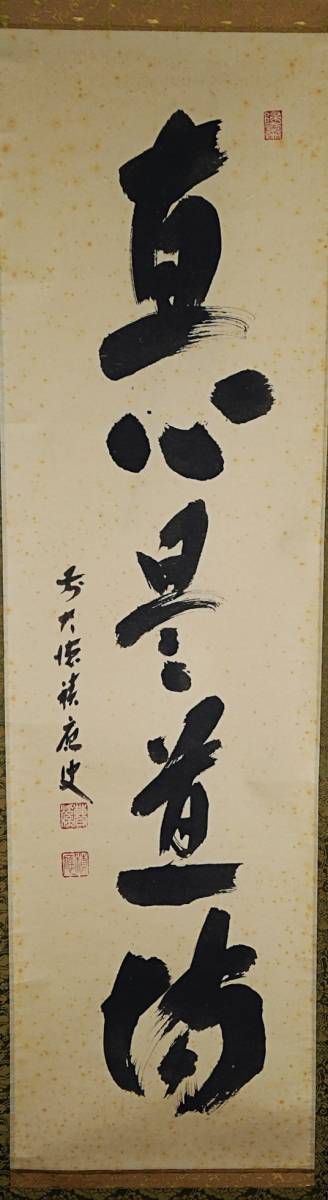 直心是道場
前大徳積應叟